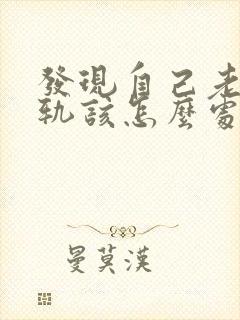 發現自己老
軌該怎麼處
曼莫漢